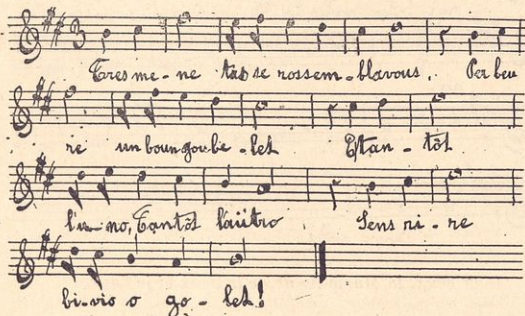 Tres me-ne tas se rossem-blavous. Per beu
re un boun goube-let Etan-tôt
l'u-no, Tantôt l'aütro Sens ri-re
bi-vio o go-let!